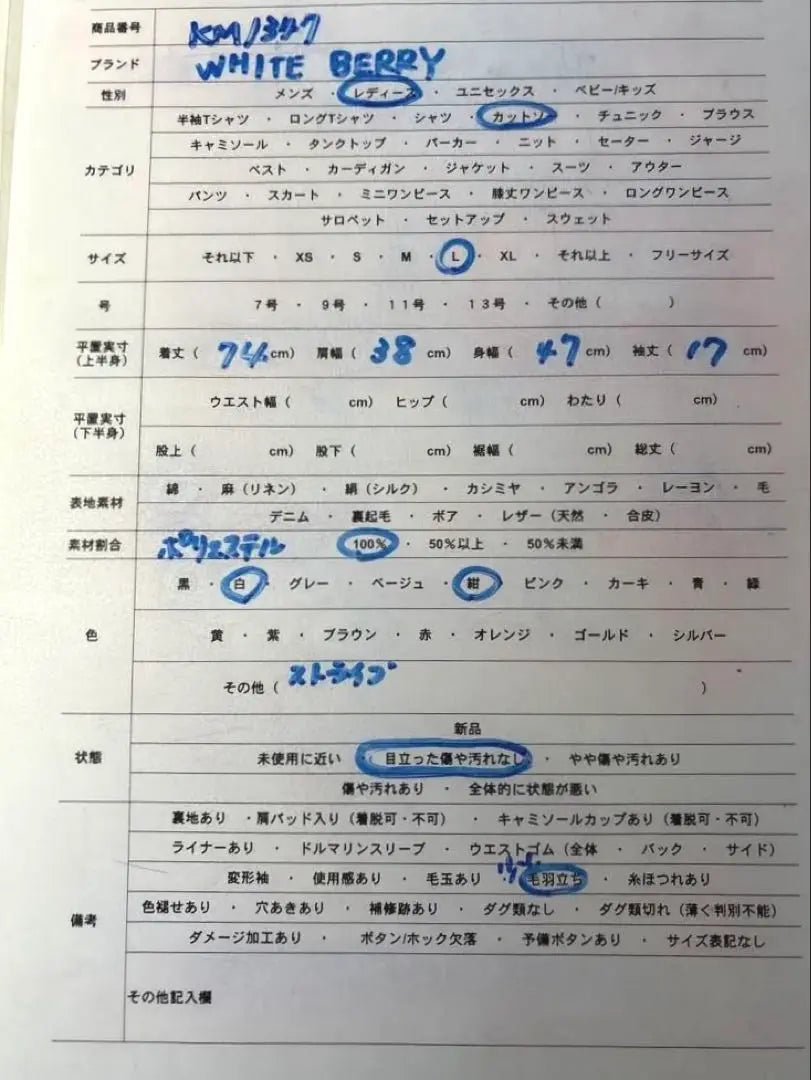 商品番号 KM1347
ブランド WHITE BERRY
性別 メンズ ・ レディース ・ ユニセックス ・ ベビー/キッズ
半袖Tシャツ ・ ロングTシャツ ・ シャツ ・ カットソー ・ チュニック ・ ブラウス
キャミソール ・ タンクトップ ・ パーカー ・ ニット ・ セーター ・ ジャージ
カテゴリ ベスト ・ カーディガン ・ ジャケット ・ スーツ ・ アウター
パンツ ・ スカート ・ ミニワンピース ・ 膝丈ワンピース ・ ロングワンピース
サロペット ・ セットアップ ・ スウェット
サイズ それ以下 ・ XS ・ S ・ M ・ L ・ XL ・ それ以上 ・ フリーサイズ
号 7号 ・ 9号 ・ 11号 ・ 13号 ・ その他( )
平置実寸(上半身) 着丈( 74 cm) 肩幅( 38 cm) 身幅( 47 cm) 袖丈( 17 cm)
ウエスト幅( cm) ヒップ( cm) わたり( cm)
平置実寸(下半身)
股上( cm) 股下( cm) 裾幅( cm) 総丈( cm)
綿 ・ 麻(リネン) ・ 絹(シルク) ・ カシミヤ ・ アンゴラ ・ レーヨン ・ 毛
表地素材
デニム ・ 裏起毛 ・ ボア ・ レザー(天然 ・ 合皮)
素材割合 ポリエステル 100% ・ 50%以上 ・ 50%未満
黒 ・ 白 ・ グレー ・ ベージュ ・ 紺 ・ ピンク ・ カーキ ・ 青 ・ 緑
色 黄 ・ 紫 ・ ブラウン ・ 赤 ・ オレンジ ・ ゴールド ・ シルバー
その他( ストライプ )
新品
状態 未使用に近い ・ 目立った傷や汚れなし ・ やや傷や汚れあり
傷や汚れあり ・ 全体的に状態が悪い
裏地あり ・肩パッド入り(着脱可・不可) ・ キャミソールカップあり(着脱可・不可)
ライナーあり ・ ドルマリンスリーブ ・ ウエストゴム(全体 ・ バック ・ サイド)
変形袖 ・ 使用感あり ・ 毛玉あり ・ 毛羽立ち ・ 糸ほつれあり
備考 色褪せあり ・ 穴あきあり ・ 補修跡あり ・ ダグ類なし ・ ダグ類切れ(薄く判別不能)
ダメージ加工あり ・ ボタン/ホック欠落 ・ 予備ボタンあり ・ サイズ表記なし
その他記入欄